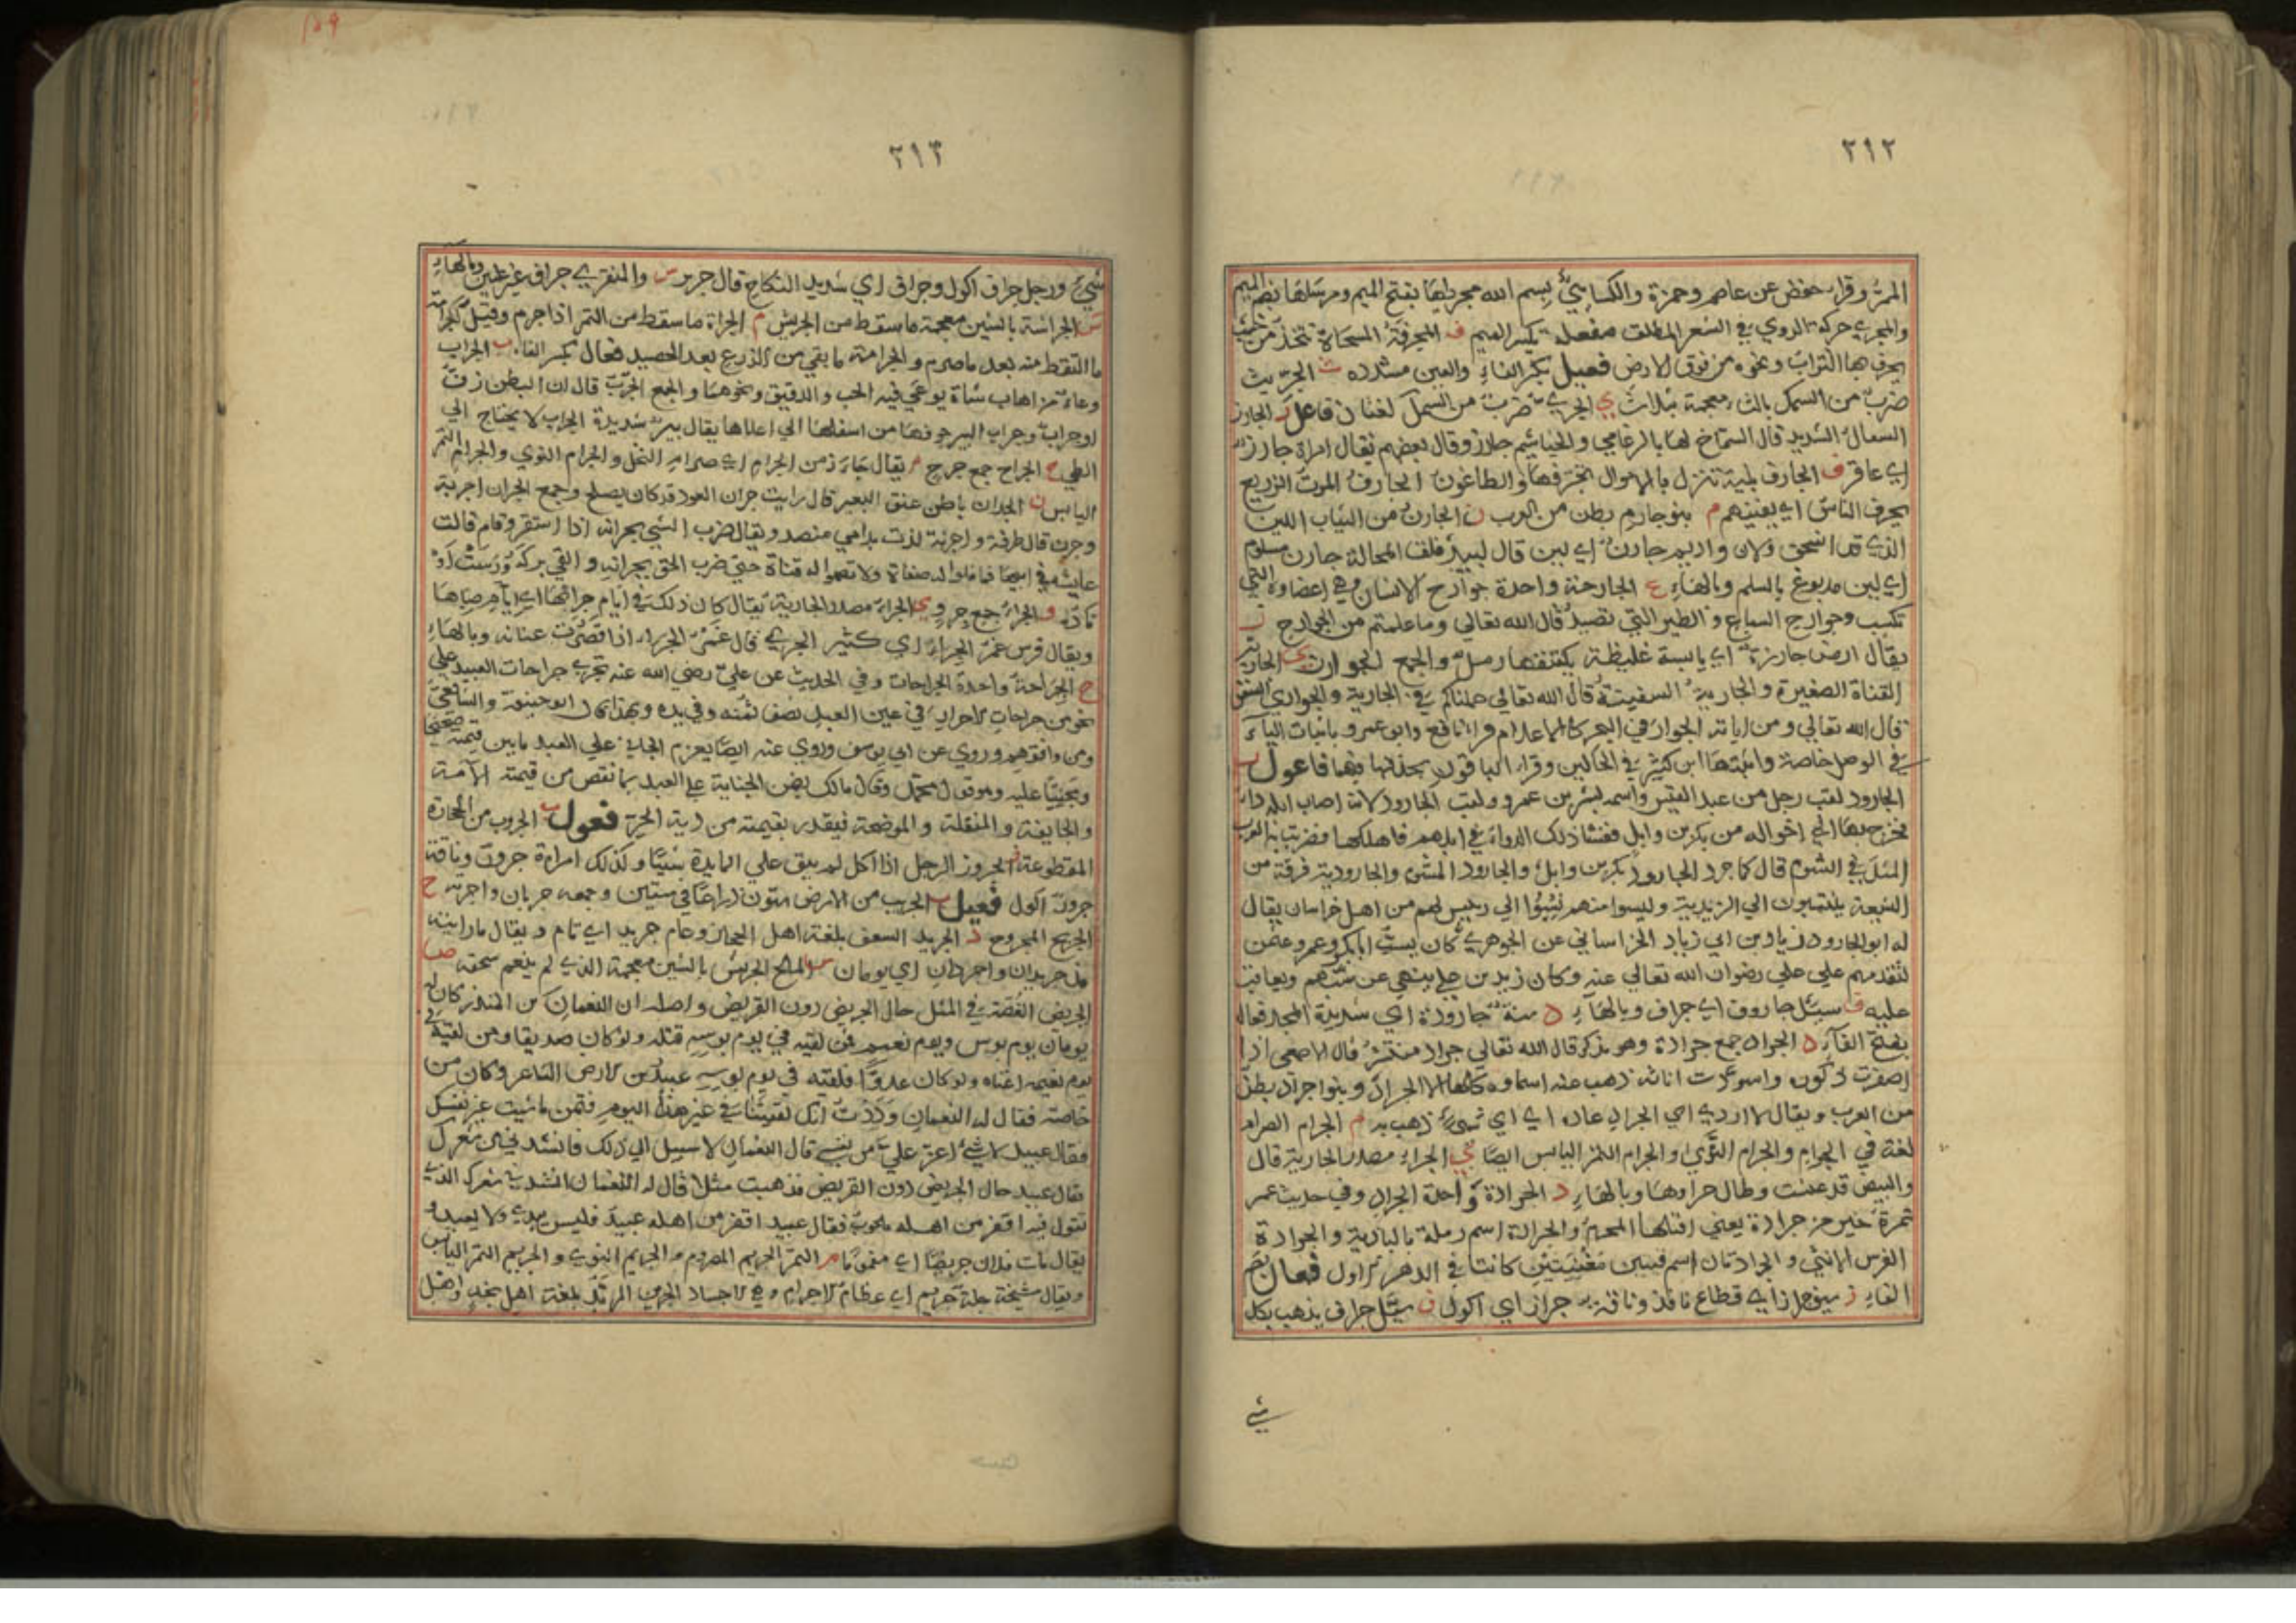 ٢١٢
الممرّ وقرأ حفص عن عاصم وحمزة والكسائيّ بسم الله مجريها بفتح الميم ومرسٰها بضم الميم
والمجري حركة الروي في الشعر المطلق مفعلة بكسر الميم ف المجرفة المسحاة تتخذ من خشب
يجرف بها التراب ونحوه من فوق الارض فعيل بكسر الفاء والعين مشدده ث الجرّيث
ضرب من السمك بالثاء معجمة بثلاث ي الجري ضرب من السمك لغتان فاعل ز الجارز
السعال الشديد قال الشماخ لها بالرغامي والخياشيم جارز وقال بعضهم يقال امراة جارز
اي عاقر ف الجارف بلية تنزل بالاموال تجرفها والطاعون الجارف الموت الذريع
يجرف الناس اي يفنيهم م بنو جارم بطن من العرب ن الجارن من الثياب اللين
الذي قد انسحق ولان واديم جارن اي لين قال لبيد فلف المحالة جارن مسلوم
اي لين مدبوغ بالسلم وبالهاء ع الجارحة واحدة جوارح الانسان وهي اعضاوه التي
تكسب وجوارح السباع والطير التي تصيد قال الله تعالي وما علمتم من الجوارح ز
يقال ارض جارزة اي يابسة غليظة يكتنفها رمل والجمع الجوارز ي الجارية
القناة الصغيرة والجارية السفينة قال الله تعالي حملناكم في الجارية والجواري السفن
قال الله تعالي ومن اياته الجوار في البحر كالاعلام قرا نافع وابن عمرو باثبات الياء
في الوصل خاصة واثبتها ابن كثير في الحالين وقرا الباقون بحذفها فيهما فاعول د
الجارود لقب رجل من عبد القيس واسمه بشر بن عمرو ولقب الجارود لانه اصاب ابله داء
فخرج بها الي اخواله من بكر بن وايل ففشا ذلك الداء في ابلهم فاهلكها فضربت به العرب
المثل في الشوم قال كما جرد الجارود بكر بن وايل والجارود المشوم والجارودية فرقة من
الشيعة ينتسبون الي الزيدية وليسوا منهم نسبوا الي رييس لهم من اهل خراسان يقال
له ابو الجارود زياد بن ابي زياد الخراساني عن الجوهري كان يسبّ ابا بكر وعمر وعثمن
لتقدمهم علي علي رضوان الله تعالي عنه وكان زيد بن علي ينهي عن سبّهم ويعاتب
عليه ف سيل جاروف اي جراف وبالهاء د سنة جارودة اي شديدة المحل فعال
بفتح الفاء د الجراد جمع جرادة وهو مذكر قال الله تعالي جراد منتشر قال الاصمعي اذا
اصفرت ذكوره واسودّت اناثه ذهب عنه اسماوه كلها الا الجراد وبنوا جراد بطن
من العرب ويقال لا ادري اي الجراد عاره اي اي شيء ذهب به م الجرام الصرام
لغة في الجرام والجرام النوي والجرام التمر اليابس ايضا ي الجراء مصدر الجارية قال
والبيض قد عنست وطال جراوها وبالهاء د الجرادة واحدة الجراد وفي حديث عمر
تمرة خير من جرادة يعني اقتلها المحرم والجرادة اسم رملة بالبادية والجرادة
الفرس الانثي والجرادتان اسم قينتين مغنيتين كانتا في الدهر الاول فعال بضم
الفاء ز سيف جراز اي قطاع نافذ وناقة جراز اي اكول ف سيل جراف يذهب بكل
شيء
٢١٣
شيء ورجل جراف اكول وجراف اي شديد النكاح قال جرير والمنقري جراف غير عنين وبالهاء
ش الجراشة بالشين معجمة ما سقط من الجريش م الجرامة ما سقط من التمر اذا جرم وقيل الجرامة
ما التقط منه بعد ما صرم والجرامة ما بقي من الزرع بعد الحصيد فعال بكسر الفاء ب الجراب
وعاء من اهاب شاة يوعي فيه الحب والدقيق ونحوهما والجمع الجرب قال ان البطن زق
او جراب وجراب البير جوفها من اسفلها الي اعلاها يقال بير شديدة الجراب لا يحتاج الي
الطي ح الجراح جمع جرح م يقال جاء زمن الجرام اي صرام النخل والجرام النوي والجرام التمر
اليابس ن الجران باطن عنق البعير قال رايت جران العود قد كان يصلح وجمع الجران اجربة
وجرن قال طرفة واجرنة لزت بدامي منضد ويقال ضرب الشي بجرانه اذا استقر وقام قالت
عايشة في ابيها فما فلوا له صفاة ولا قصموا له قناة حتي ضرب الحق بجرانه والقي بركه ورست اوتاده
و الجراء جمع جرو ي الجراء مصدر الجارية يقال كان ذلك في ايام جرايها اي ايام صباها
ويقال فرس غمر الجراء اي كثير الجري قال غمر الجراء اذا قصرت عنانه وبالهاء
ح الجراحة واحدة الجراحات وفي الحديث عن علي رضي الله عنه تجري جراحات العبيد علي
نحو من جراحات الاحرار في عين العبد نصف ثمنه وفي يده وبهذا قال ابو حنيفة والشافعي
ومن وافقهم وروي عن ابي يوسف وروي عنه ايضا يغرم الجاني علي العبد ما بين قيمته صحيحا
ومجنيا عليه وهو قول محمد وقال مالك يضمن الجناية علي العبد بما نقص من قيمته الا الامة
والجايفة والمنقلة والموضحة فيقدر بقيمته من دية الحر فعول ب الجروب من الحجارة
المقطوعة ز الجروز الرجل اذا اكل لم يبق علي المايدة شييا وكذلك امراءة جروز وناقة
جروز اكول فعيل ب الجريب من الارض ستون ذراعا في ستين وجمعه جربان واجربة ح
الجريح المجروح د الجريد السعف بلغة اهل الحجاز وعام جريد اي تام ويقال ما رايته
مذ جريدان واجردان اي يومان ش الملح الجريش بالشين معجمة الذي لم ينعم سحقه ض
الجريض الغصة في المثل حال الجريض دون القريض واصله ان النعمان بن المنذر كان له
يومان يوم بوس ويوم نعيم فمن لقيه في يوم بوسه قتله ولو كان صديقا ومن لقيه في
يوم نعيمه اغناه ولو كان عدوا فلقيه في يوم بوسه عبيد بن الابرص الشاعر وكان من
خاصته فقال له النعمان وددت انك لقيتنا في غير هذا اليوم فتمن ما شيت غير نفسك
فقال عبيد لا شيء اعز علي من نفسي قال النعمان لا سبيل الي ذلك فانشدني من شعرك
فقال عبيد حال الجريض دون القريض فذهبت مثلا قال له النعمان انشدني شعرك الذي
تقول فيه اقفر من اهله ملحوب فقال عبيد اقفر من اهله عبيد فليس يبدي ولا يعيد و
يقال مات فلان جريضا اي مغموما م التمر الجريم المصروم والجريم النوي والجريم التمر اليابس
ويقال مشيخة جلة جريم اي عظام الاجرام وهي الاجساد الجرين المربد بلغة اهل نجد واصل